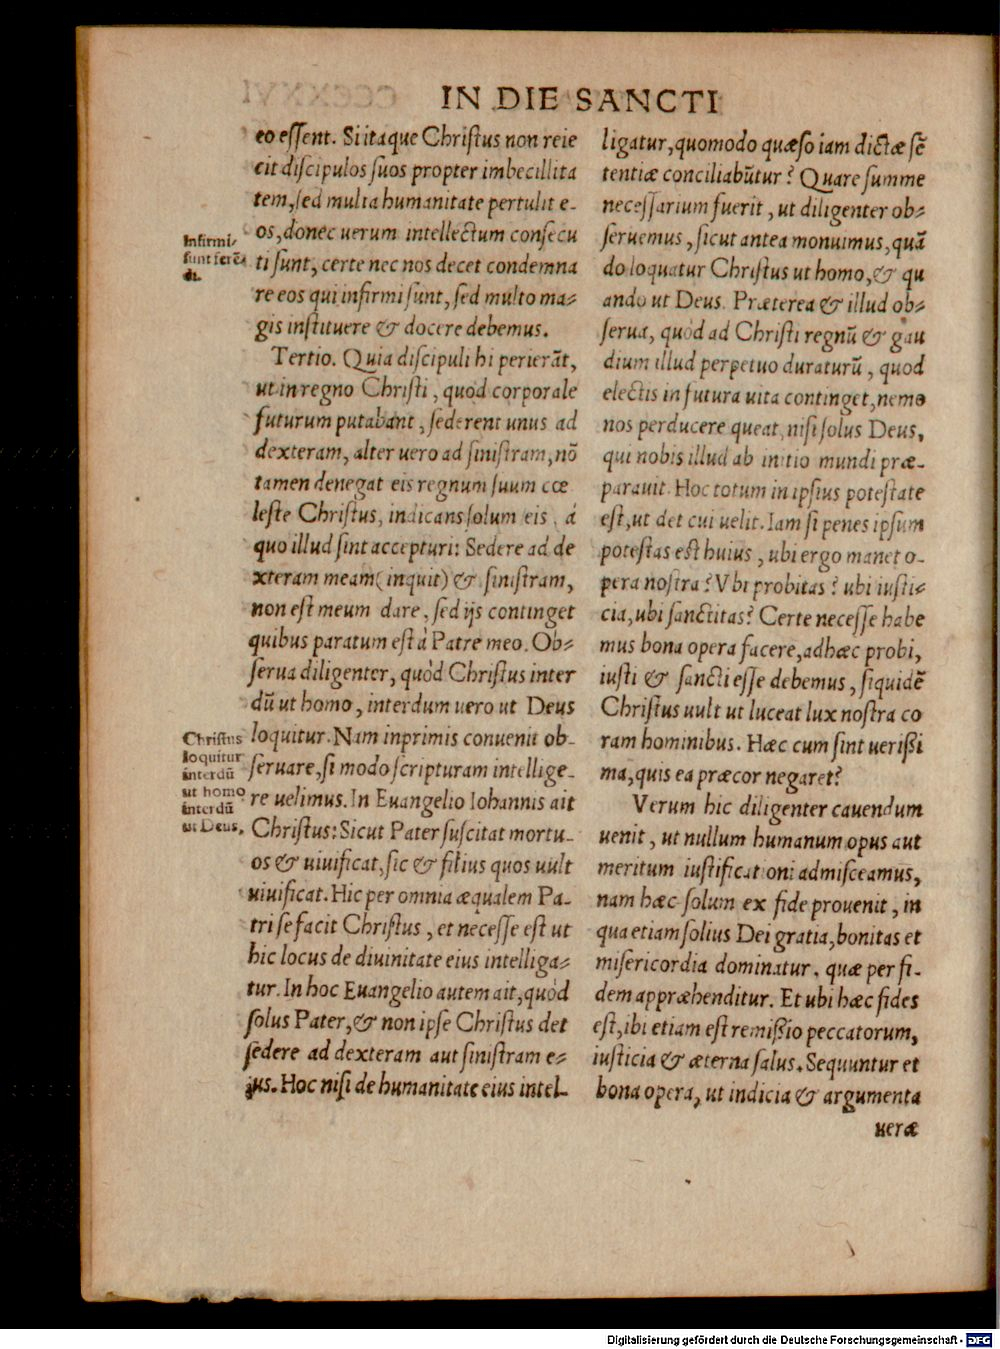 IN DIE SANCTI
eo essent. Si itaque Christus non reie
cit discipulos suos propter imbecillita
tem, sed multa humanitate pertulit e-
os, donec uerum intellectum consecu
ti sunt, certe nec nos decet condemna
re eos qui infirmi sunt, sed multo ma-
gis instituere & docere debemus.
Tertio. Quia discipuli hi perierāt,
ut in regno Christi, quod corporale
futurum putabant, sederent unus ad
dexteram, alter uero ad sinistram, nō
tamen denegat eis regnum suum cœ
leste Christus, indicans solum eis, à
quo illud sint accepturi: Sedere ad de
xteram meam (inquit) & sinistram,
non est meum dare, sed ijs continget
quibus paratum est à Patre meo. Ob-
serua diligenter, quòd Christus inter
dū ut homo, interdum uero ut Deus
loquitur. Nam inprimis conuenit ob-
seruare, si modo scripturam intellige-
re uelimus. In Euangelio Iohannis ait
Christus: Sicut Pater suscitat mortu-
os & uiuificat, sic & filius quos uult
uiuificat. Hic per omnia æqualem Pa-
tri se facit Christus, et necesse est ut
hic locus de diuinitate eius intelliga-
tur. In hoc Euangelio autem ait, quòd
solus Pater, & non ipse Christus det
sedere ad dexteram aut sinistram e-
ius. Hoc nisi de humanitate eius intel-
Infirmi
sunt ferē
di.
Christus
loquitur
interdū
ut homo
interdū
ut Deus.
ligatur, quomodo quæso iam dictæ sē
tentiæ conciliabūtur? Quare summe
necessarium fuerit, ut diligenter ob-
seruemus, sicut antea monuimus, quā
do loquatur Christus ut homo, & qu
ando ut Deus. Præterea & illud ob-
serua, quòd ad Christi regnū & gau
dium illud perpetuo duraturū, quod
electis in futura uita continget, nemo
nos perducere queat, nisi solus Deus,
qui nobis illud ab initio mundi præ-
parauit. Hoc totum in ipsius potestate
est, ut det cui uelit. Iam si penes ipsum
potestas est huius, ubi ergo manet o-
pera nostra? Vbi probitas? ubi iusti-
cia, ubi sanctitas? Certe necesse habe
mus bona opera facere, adhæc probi,
iusti & sancti esse debemus, siquidē
Christus uult ut luceat lux nostra co
ram hominibus. Hæc cum sint uerißi
ma, quis ea præcor negaret?
Verum hic diligenter cauendum
uenit, ut nullum humanum opus aut
meritum iustificationi admisceamus,
nam hæc solum ex fide prouenit, in
qua etiam solius Dei gratia, bonitas et
misericordia dominatur, quæ per fi-
dem appræhenditur. Et ubi hæc fides
est, ibi etiam est remißio peccatorum,
iusticia & æterna salus. Sequuntur et
bona opera, ut indicia & argumenta
ueræ
Digitalisierung gefördert durch die Deutsche Forschungsgemeinschaft - DFG